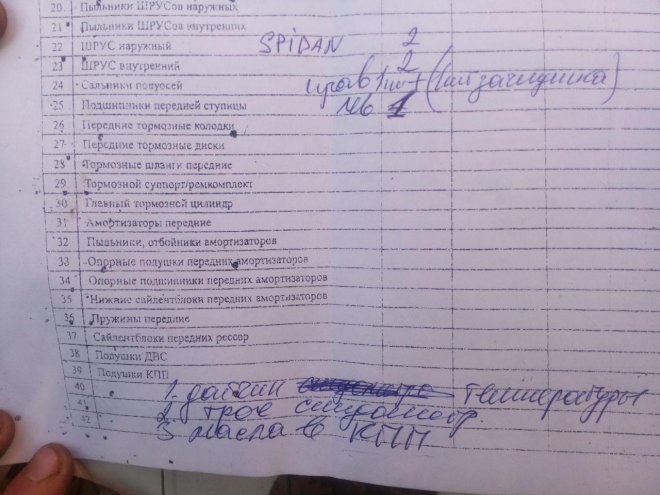 20. Пыльники ШРУСов наружных
21 Пыльники ШРУСов внутренних
22 ШРУС наружный SPIDAN 2
23 ШРУС внутренний 2
24 Сальники полуосей прав 1шт
25 Подшипники передней ступицы лев 1
26 Передние тормозные колодки
27 Передние тормозные диски
28 Тормозные шланги передние
29 Тормозной суппорт/ремкомплект
30 Главный тормозной цилиндр
31 Амортизаторы передние
32 Пыльники, отбойники амортизаторов
33 Опорные подушки передних амортизаторов
34 Опорные подшипники передних амортизаторов
35 Нижние сайлентблоки передних амортизаторов
36 Пружины передние
37 Сайлентблоки передних рессор
38 Подушки ДВС
39 Подушки КПП
40 1. датчик температуры
41 2. трос спидометр.
42 3 масла в КПП